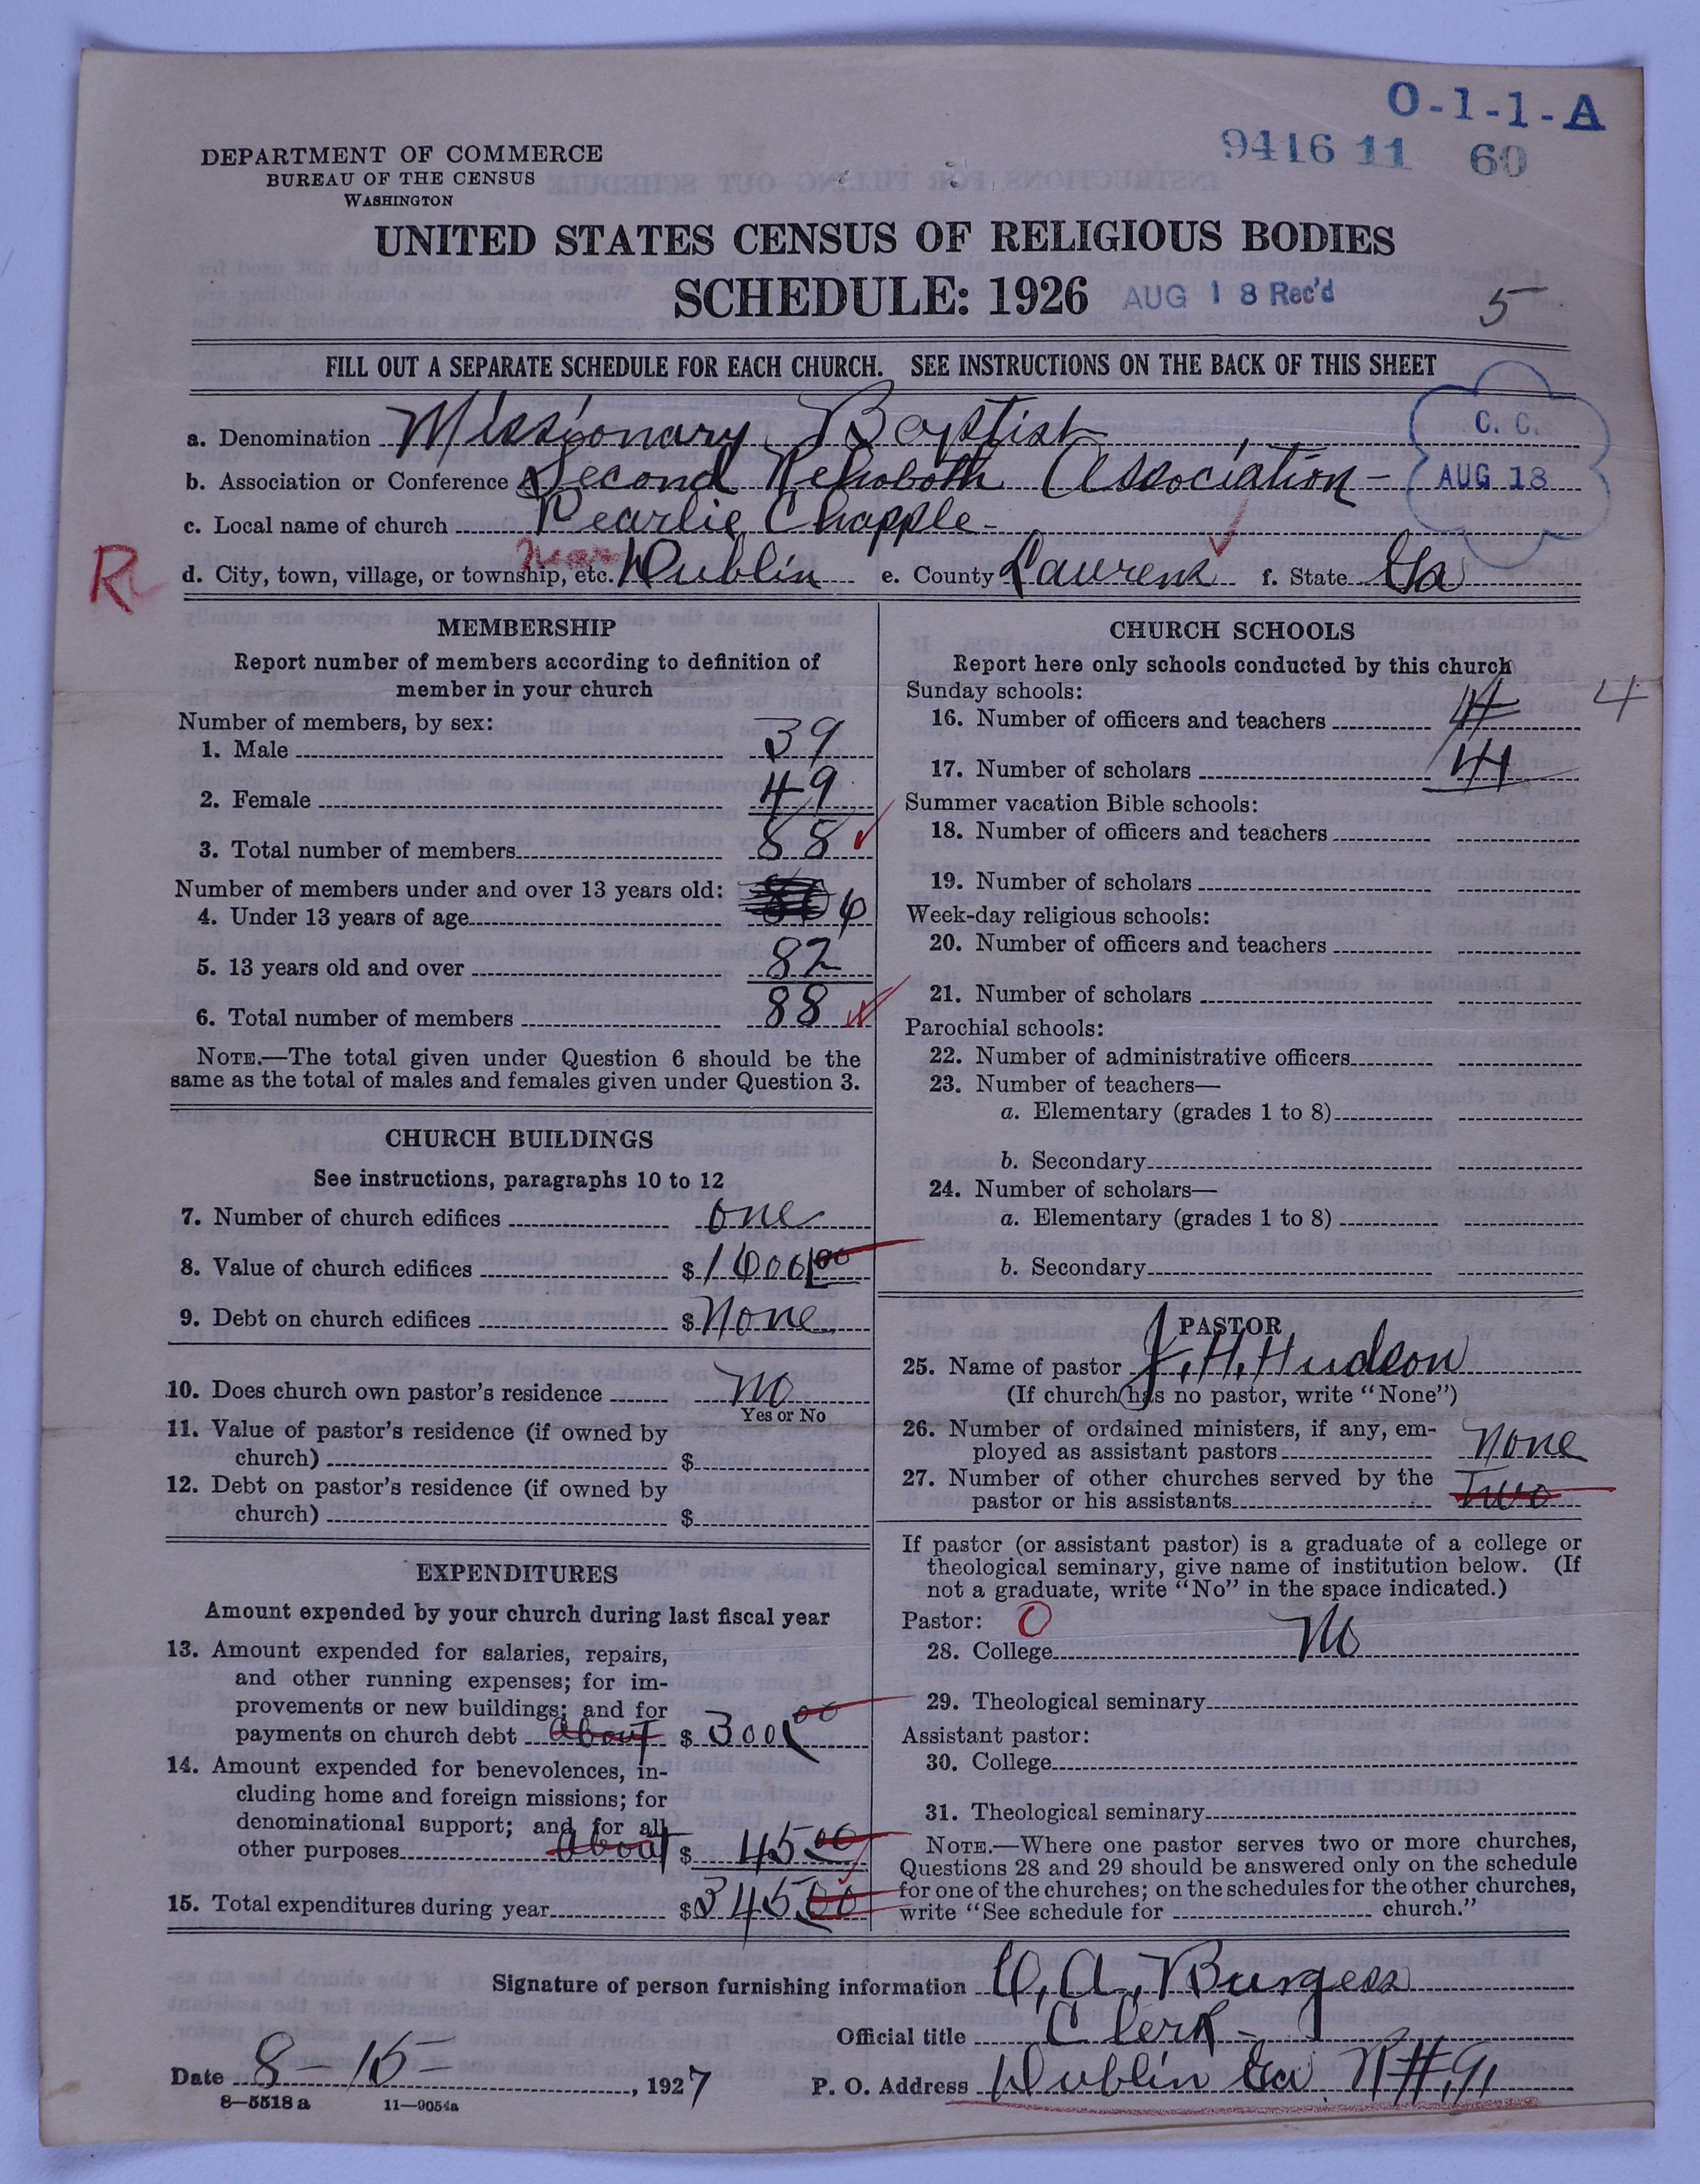 O-1-1-A
9416 11 60
DEPARTMENT OF COMMERCE
BUREAU OF THE CENSUS
WASHINGTON
UNITED STATES CENSUS OF RELIGIOUS BODIES
SCHEDULE: 1926 AUG 18 Rec'd 5
FILL OUT A SEPARATE SCHEDULE FOR EACH CHURCH. SEE INSTRUCTIONS ON THE BACK OF THIS SHEET
a. Denomination Missionary Baptist
C. C.
b. Association or Conference Second Rehoboth Association-
AUG 18
c. Local name of church Pearlie Chapple-
R d. City, town, village, or township, etc. near Dublin e. County Laurens f. State Ga
MEMBERSHIP
Report number of members according to definition of
member in your church
Number of members, by sex:
1. Male 39
2. Female 49
3. Total number of members 88
Number of members under and over 13 years old:
4. Under 13 years of age 6
5. 13 years old and over 82
6. Total number of members 88
NOTE.—The total given under Question 6 should be the
same as the total of males and females given under Question 3.
CHURCH BUILDINGS
See instructions, paragraphs 10 to 12
7. Number of church edifices one
8. Value of church edifices $ 1600 00
9. Debt on church edifices $ none
10. Does church own pastor's residence no
Yes or No
11. Value of pastor's residence (if owned by
church) $
12. Debt on pastor's residence (if owned by
church) $
EXPENDITURES
Amount expended by your church during last fiscal year
13. Amount expended for salaries, repairs,
and other running expenses; for im-
provements or new buildings; and for
payments on church debt about $ 300 00
14. Amount expended for benevolences, in-
cluding home and foreign missions; for
denominational support; and for all
other purposes about $ 45 00
15. Total expenditures during year $ 345.00
CHURCH SCHOOLS
Report here only schools conducted by this church
Sunday schools:
16. Number of officers and teachers 4 4
17. Number of scholars 41
Summer vacation Bible schools:
18. Number of officers and teachers
19. Number of scholars
Week-day religious schools:
20. Number of officers and teachers
21. Number of scholars
Parochial schools:
22. Number of administrative officers
23. Number of teachers—
a. Elementary (grades 1 to 8)
b. Secondary
24. Number of scholars—
a. Elementary (grades 1 to 8)
b. Secondary
PASTOR
25. Name of pastor J. H. Hudson
(If church has no pastor, write "None")
26. Number of ordained ministers, if any, em-
ployed as assistant pastors none
27. Number of other churches served by the
pastor or his assistants Two
If pastor (or assistant pastor) is a graduate of a college or
theological seminary, give name of institution below. (If
not a graduate, write "No" in the space indicated.)
Pastor: O
28. College no
29. Theological seminary
Assistant pastor:
30. College
31. Theological seminary
NOTE.—Where one pastor serves two or more churches,
Questions 28 and 29 should be answered only on the schedule
for one of the churches; on the schedules for the other churches,
write "See schedule for church."
Signature of person furnishing information A. Burgess
Official title Clerk-
Date 8-15-, 1927 P. O. Address Dublin Ga. R#.
8—5518 a 11—9054a